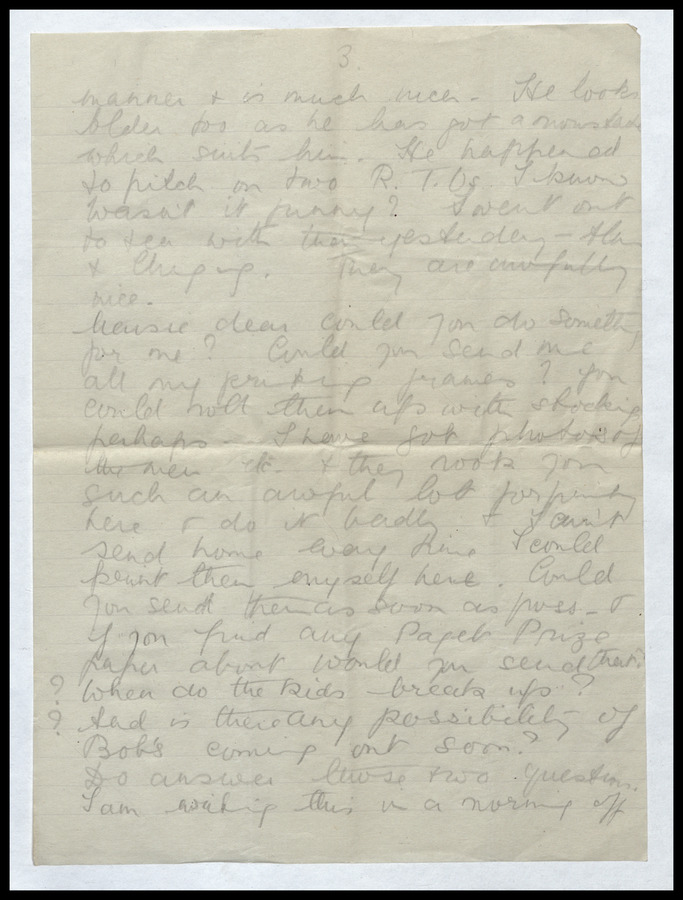 3.
manner & is much nicer - He looks
older too as he has got a moustache
which suits him. He happened
to pitch on two R.T.Os I know
wasn't it funny? I went out
to tea with them yesterday -
& They are awfully
nice.
dear could you do something
for me? Could you send me
all my printing frames? You
could roll them up with stockings
perhaps - I have got photos of
the men etc. & they rook you
such an awful lot for printing
here & do it badly & I can't
send home every time I could
print them myself here. Could
you send them as soon as poss - &
if you find any Paget Prize
paper about would you send that?
? When do the kids break up?
? And is there any possibility of
Bob's coming out soon?
Do answer these two questions.
I am writing this in a morning off